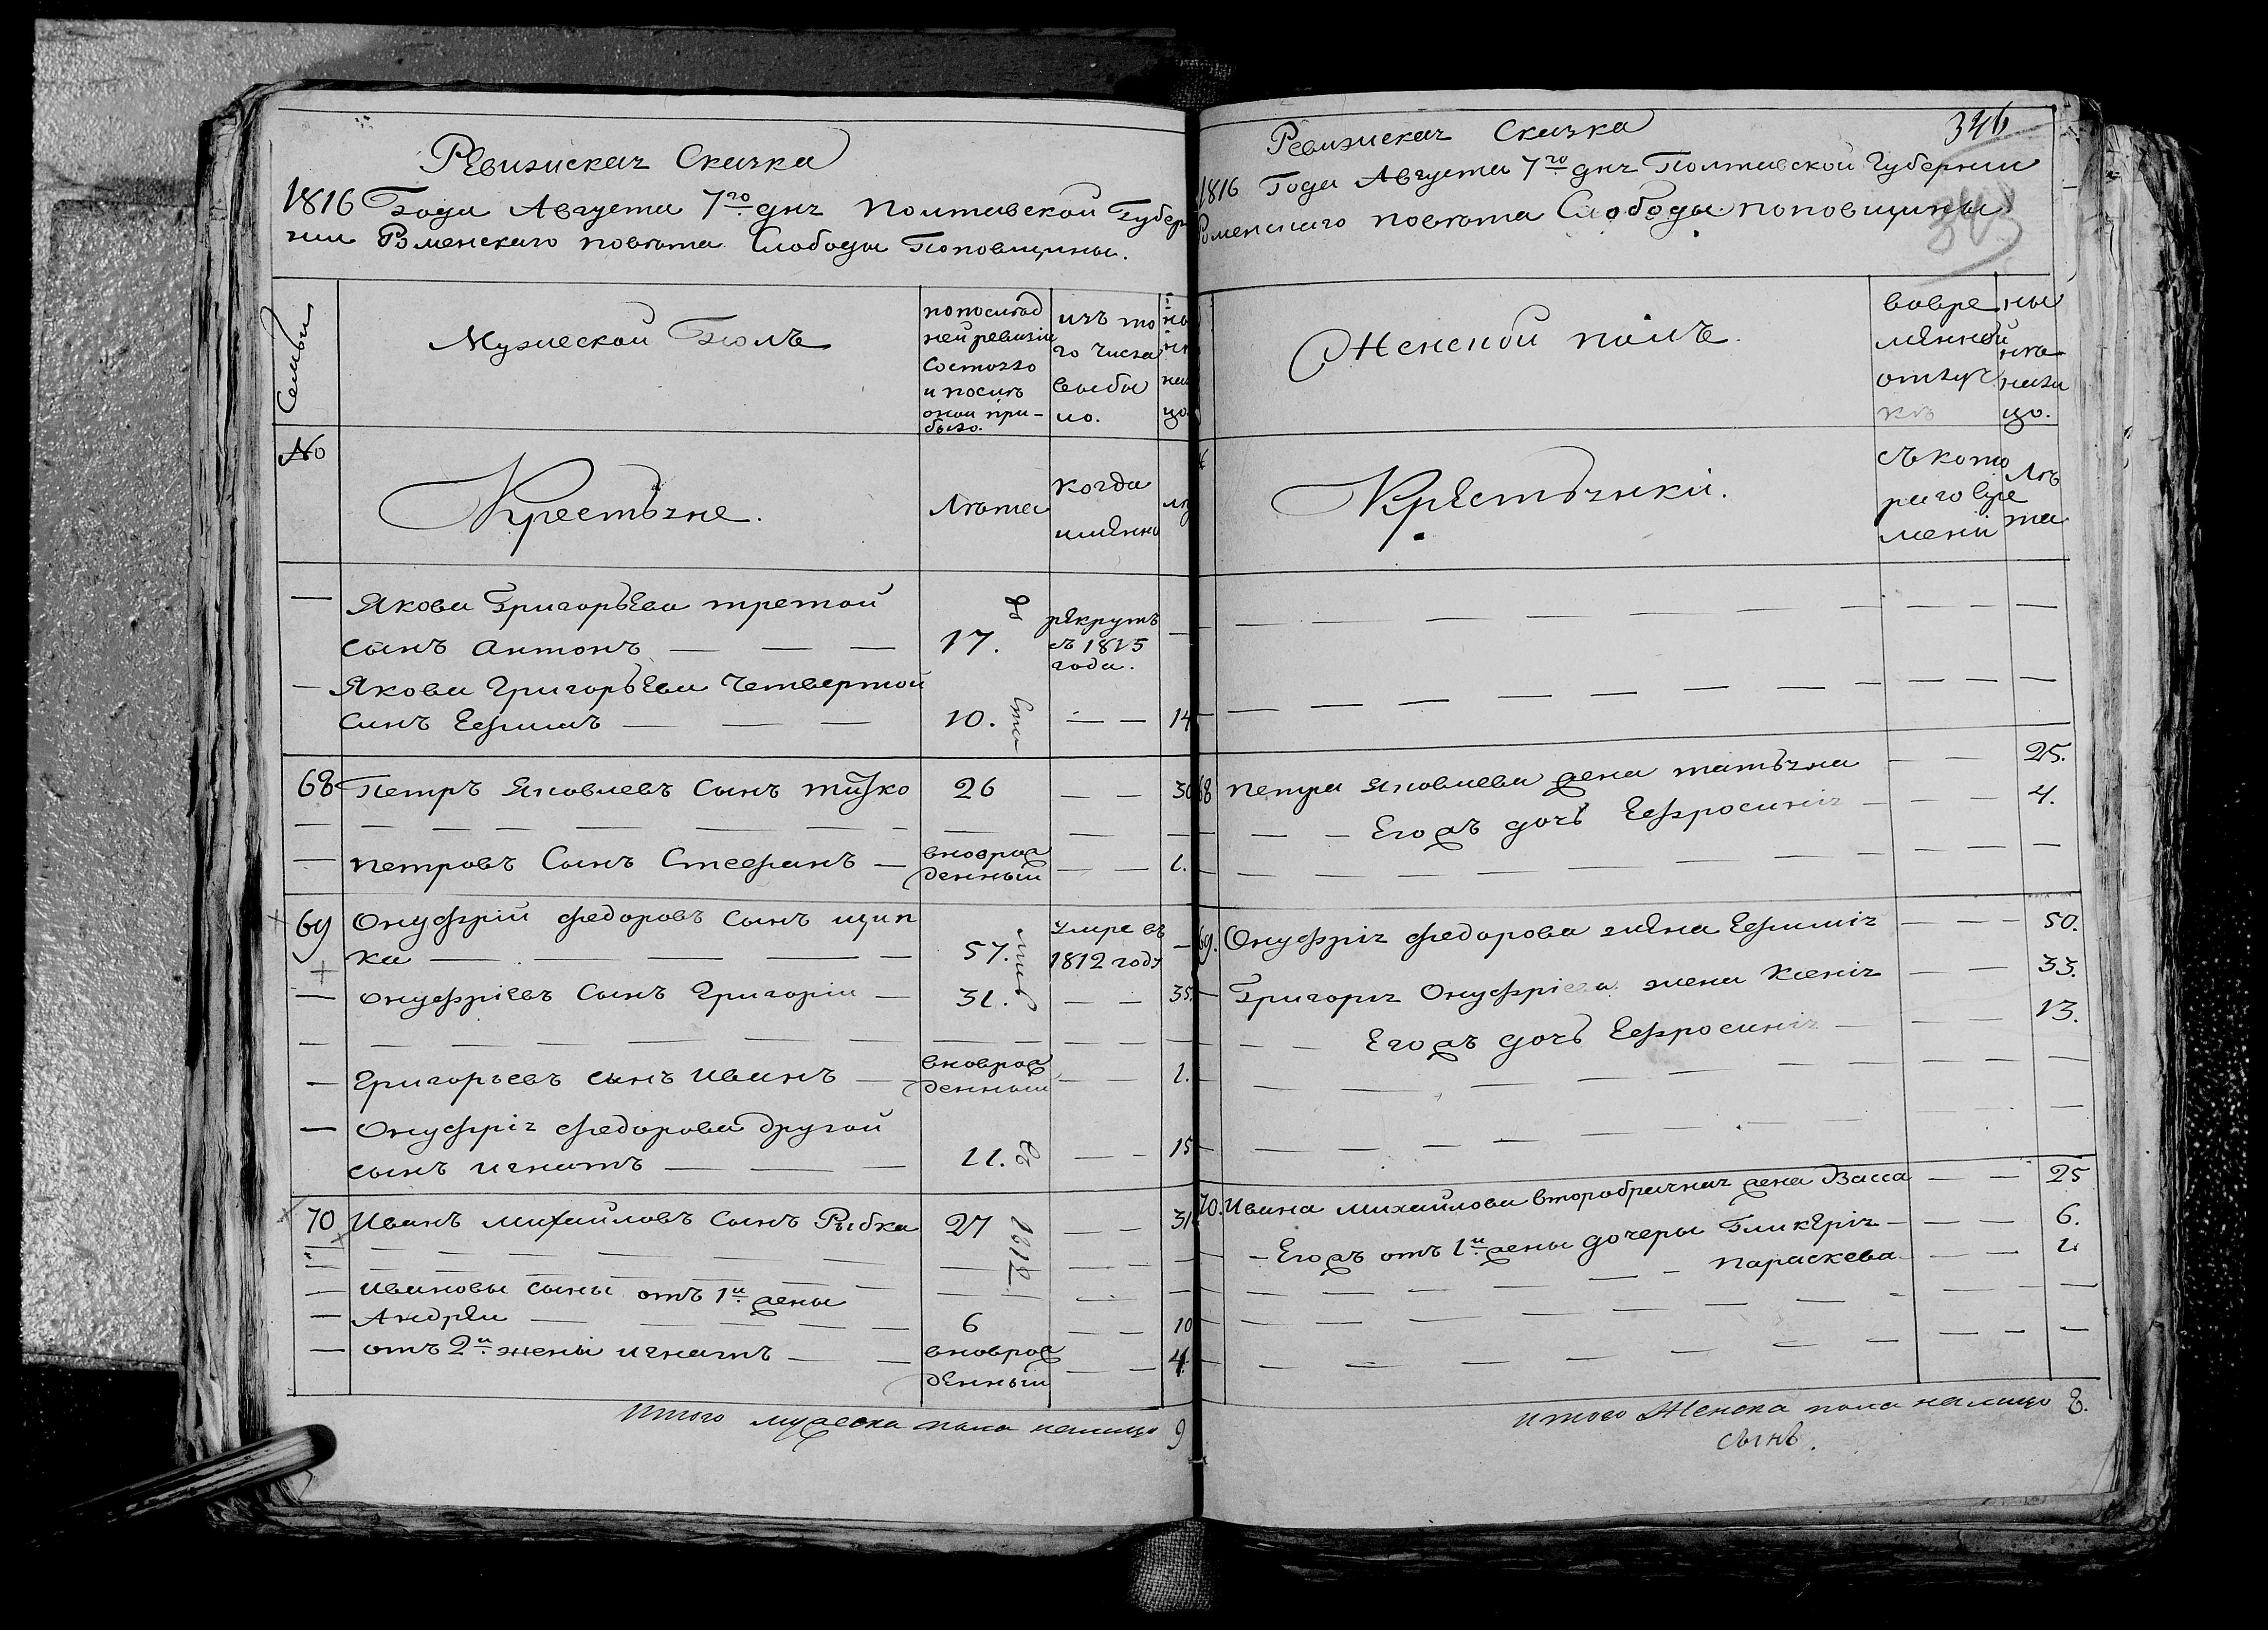 Ревизская Сказка
1816 Года Августа 7го дня Полтавской Губер
нии Роменскаго повѣта Слободы Поповщины.
Семьи
Мужеской Полъ
по послѣд
ней ревизіи
Состояло
и послѣ
оной при-
было.
изъ то
го числа
выбы
ло.
№
Крестьяне.
Лѣта
Когда
имянно
Якова Григорьева третой
сынъ Антонъ 17. рекрутъ
съ 1815
года.
Якова Григорьева Четвертой
синъ Ефимъ 10. 14
68 Петръ Яковлевъ Сынъ 26 30
Петровъ Сынъ Стефанъ вноврож
денный 1.
69 Онуфрій Федоровъ Сынъ щип
ка 57. умре въ
1812 году
Онуфріевъ Сынъ Григорій 31. 35.
Григорьевъ сынъ Иванъ вноврож
денный 1.
Онуфрія Федорова другой
сынъ Игнатъ 11. 15
70 Иванъ Михайловъ Сынъ Рыбка 27 31
Ивановы сыны отъ 1й жены
Андрей 6 10
отъ 2й жены Игнатъ вноврож
денный 4.
Итого мужеска пола налицо 9
346
Ревизская Сказка
1816 Года Августа 7го дня Полтавской Губернии
Роменскаго повѣта Слободы Поповщины
Женской полъ.
вовре
мянной
отлуч
кѣ
ны
нѣ
нали
цо.
Крестьянки.
съ кото
раго вре
мени
Лѣ
та
68 Петра Яковлева жена Татьяна 25.
Его жъ дочь Ефросинія 4.
69. Онуфрія Федорова жена Ефимія 50.
Григорія Онуфріева жена Ксенія 33.
Его жъ дочь Ефросинія 13.
70. Ивана Михайлова второбрачная жена Васса 25
Его жъ отъ 1й жены дочеры Гликерія 6.
Параскева
Итого Женска пола налицо 8.
сынъ.